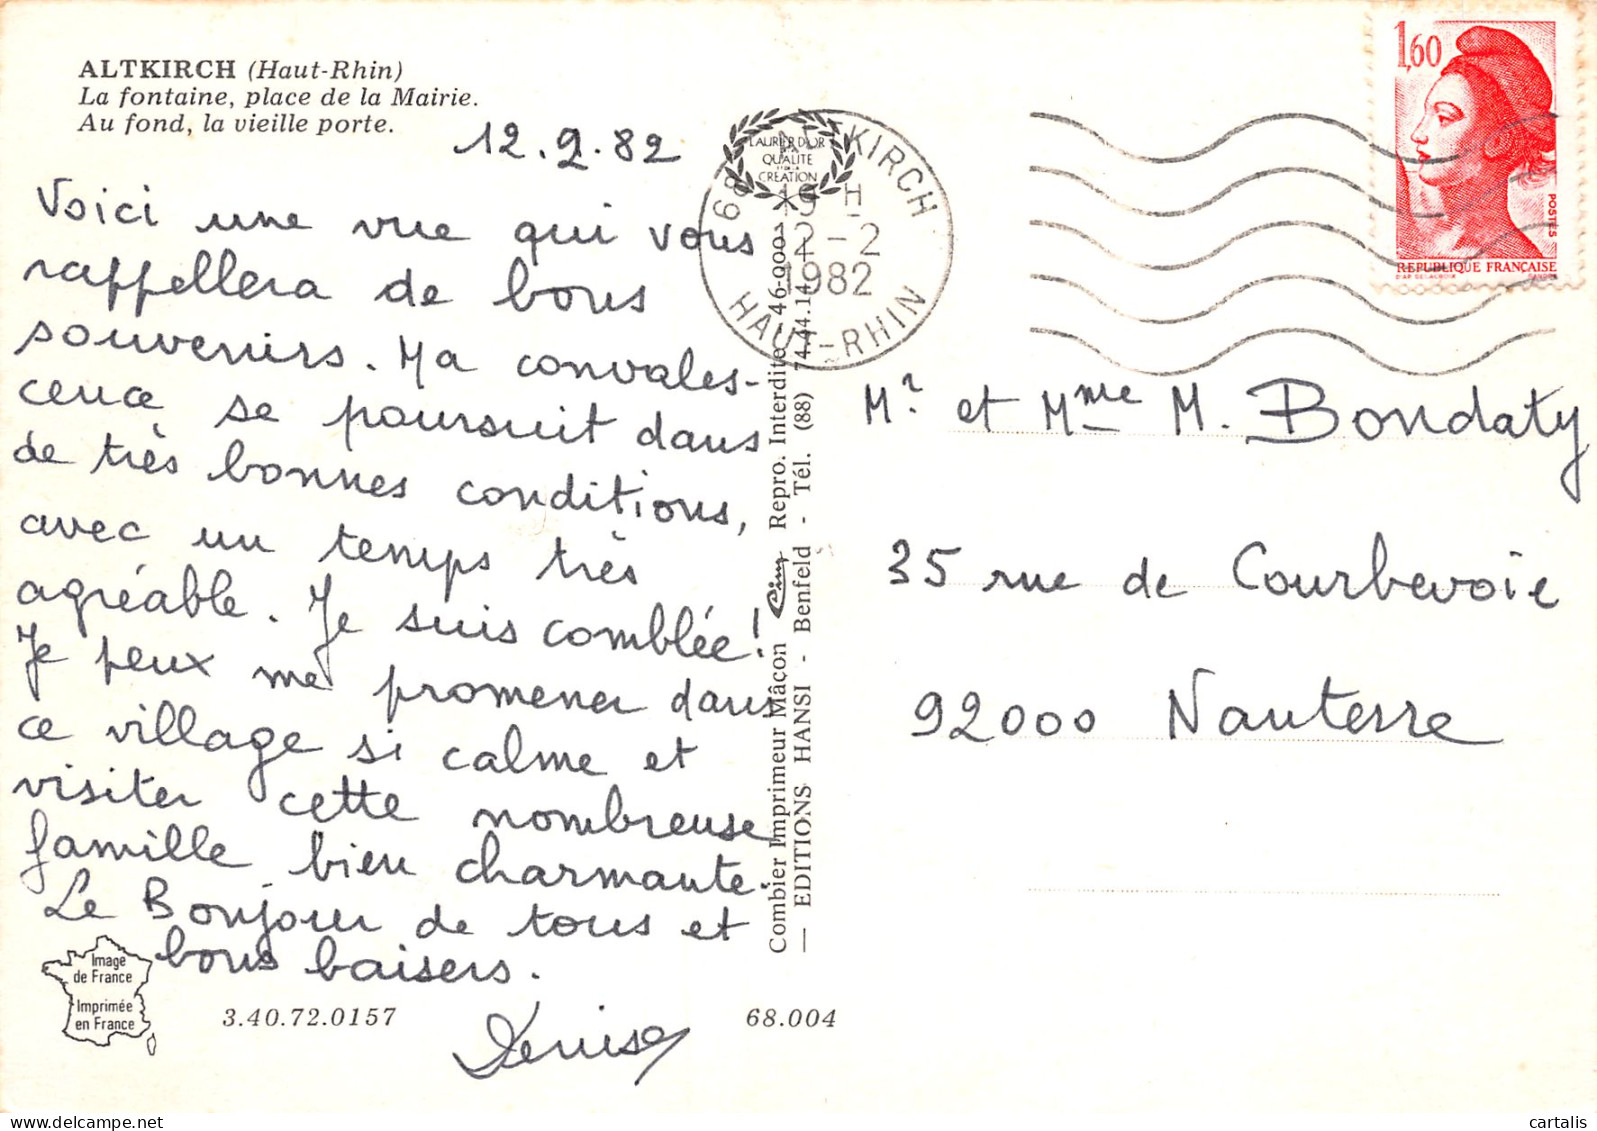 ALTKIRCH (Haut-Rhin)
La fontaine, place de la Mairie.
Au fond, la vieille porte.
12.2.82
Voici une vue qui vous
rappellera de bons
souvenirs. Ma convales-
cence se poursuit dans
de très bonnes conditions,
avec un temps très
agréable. Je suis comblée!
Je peux me promener dans
ce village si calme et
visiter cette nombreuse
famille bien charmante.
Le Bonjour de tous et
bons baisers.
Denise
Image
de France
Imprimée
en France
3.40.72.0157
68.004
Combier Imprimeur Mâcon Cim Repro. Interdite 46-0001
— EDITIONS HANSI - Benfeld - Tél. (88) 74.44.14 +
LAURIER D'OR
QUALITE
CREATION
68 ALTKIRCH
19 H
12-2
1982
HAUT-RHIN
1,60
POSTES
REPUBLIQUE FRANÇAISE
D'AP. DELACROIX GANDON
Mr et Mme M. Bondaty
35 rue de Courbevoie
92000 Nanterre
cartalis